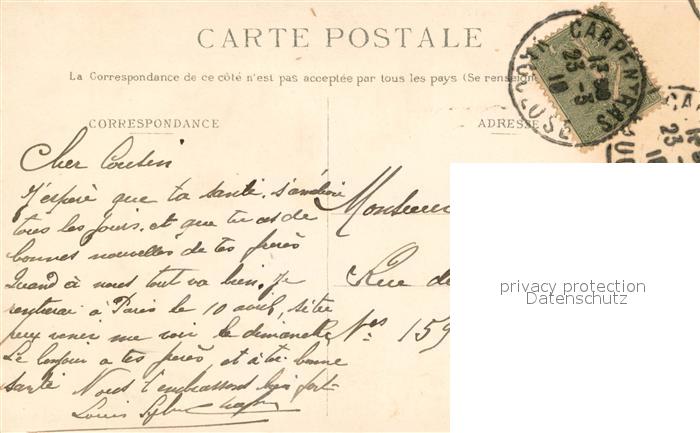 CARTE POSTALE
La Correspondance de ce côté n'est pas acceptée par tous les pays (Se renseigne
CORRESPONDANCE
ADRESSE
CARPENTRAS
VAUCLUSE
23 -3
18
Cher Cousin
J'espère que ta santé s'améliore
tous les jours. et que tu as de
bonnes nouvelles de tes frères
Quand à nous tout va bien. Je
rentrerai à Paris le 10 avril, si tu
peux venir me voir le dimanche
Le bonjour a tes frères et à toi bonne
santé Nous t'embrassons bien fort
Louis
Monsieur
Rue de
Nos 159
privacy protection
Datenschutz